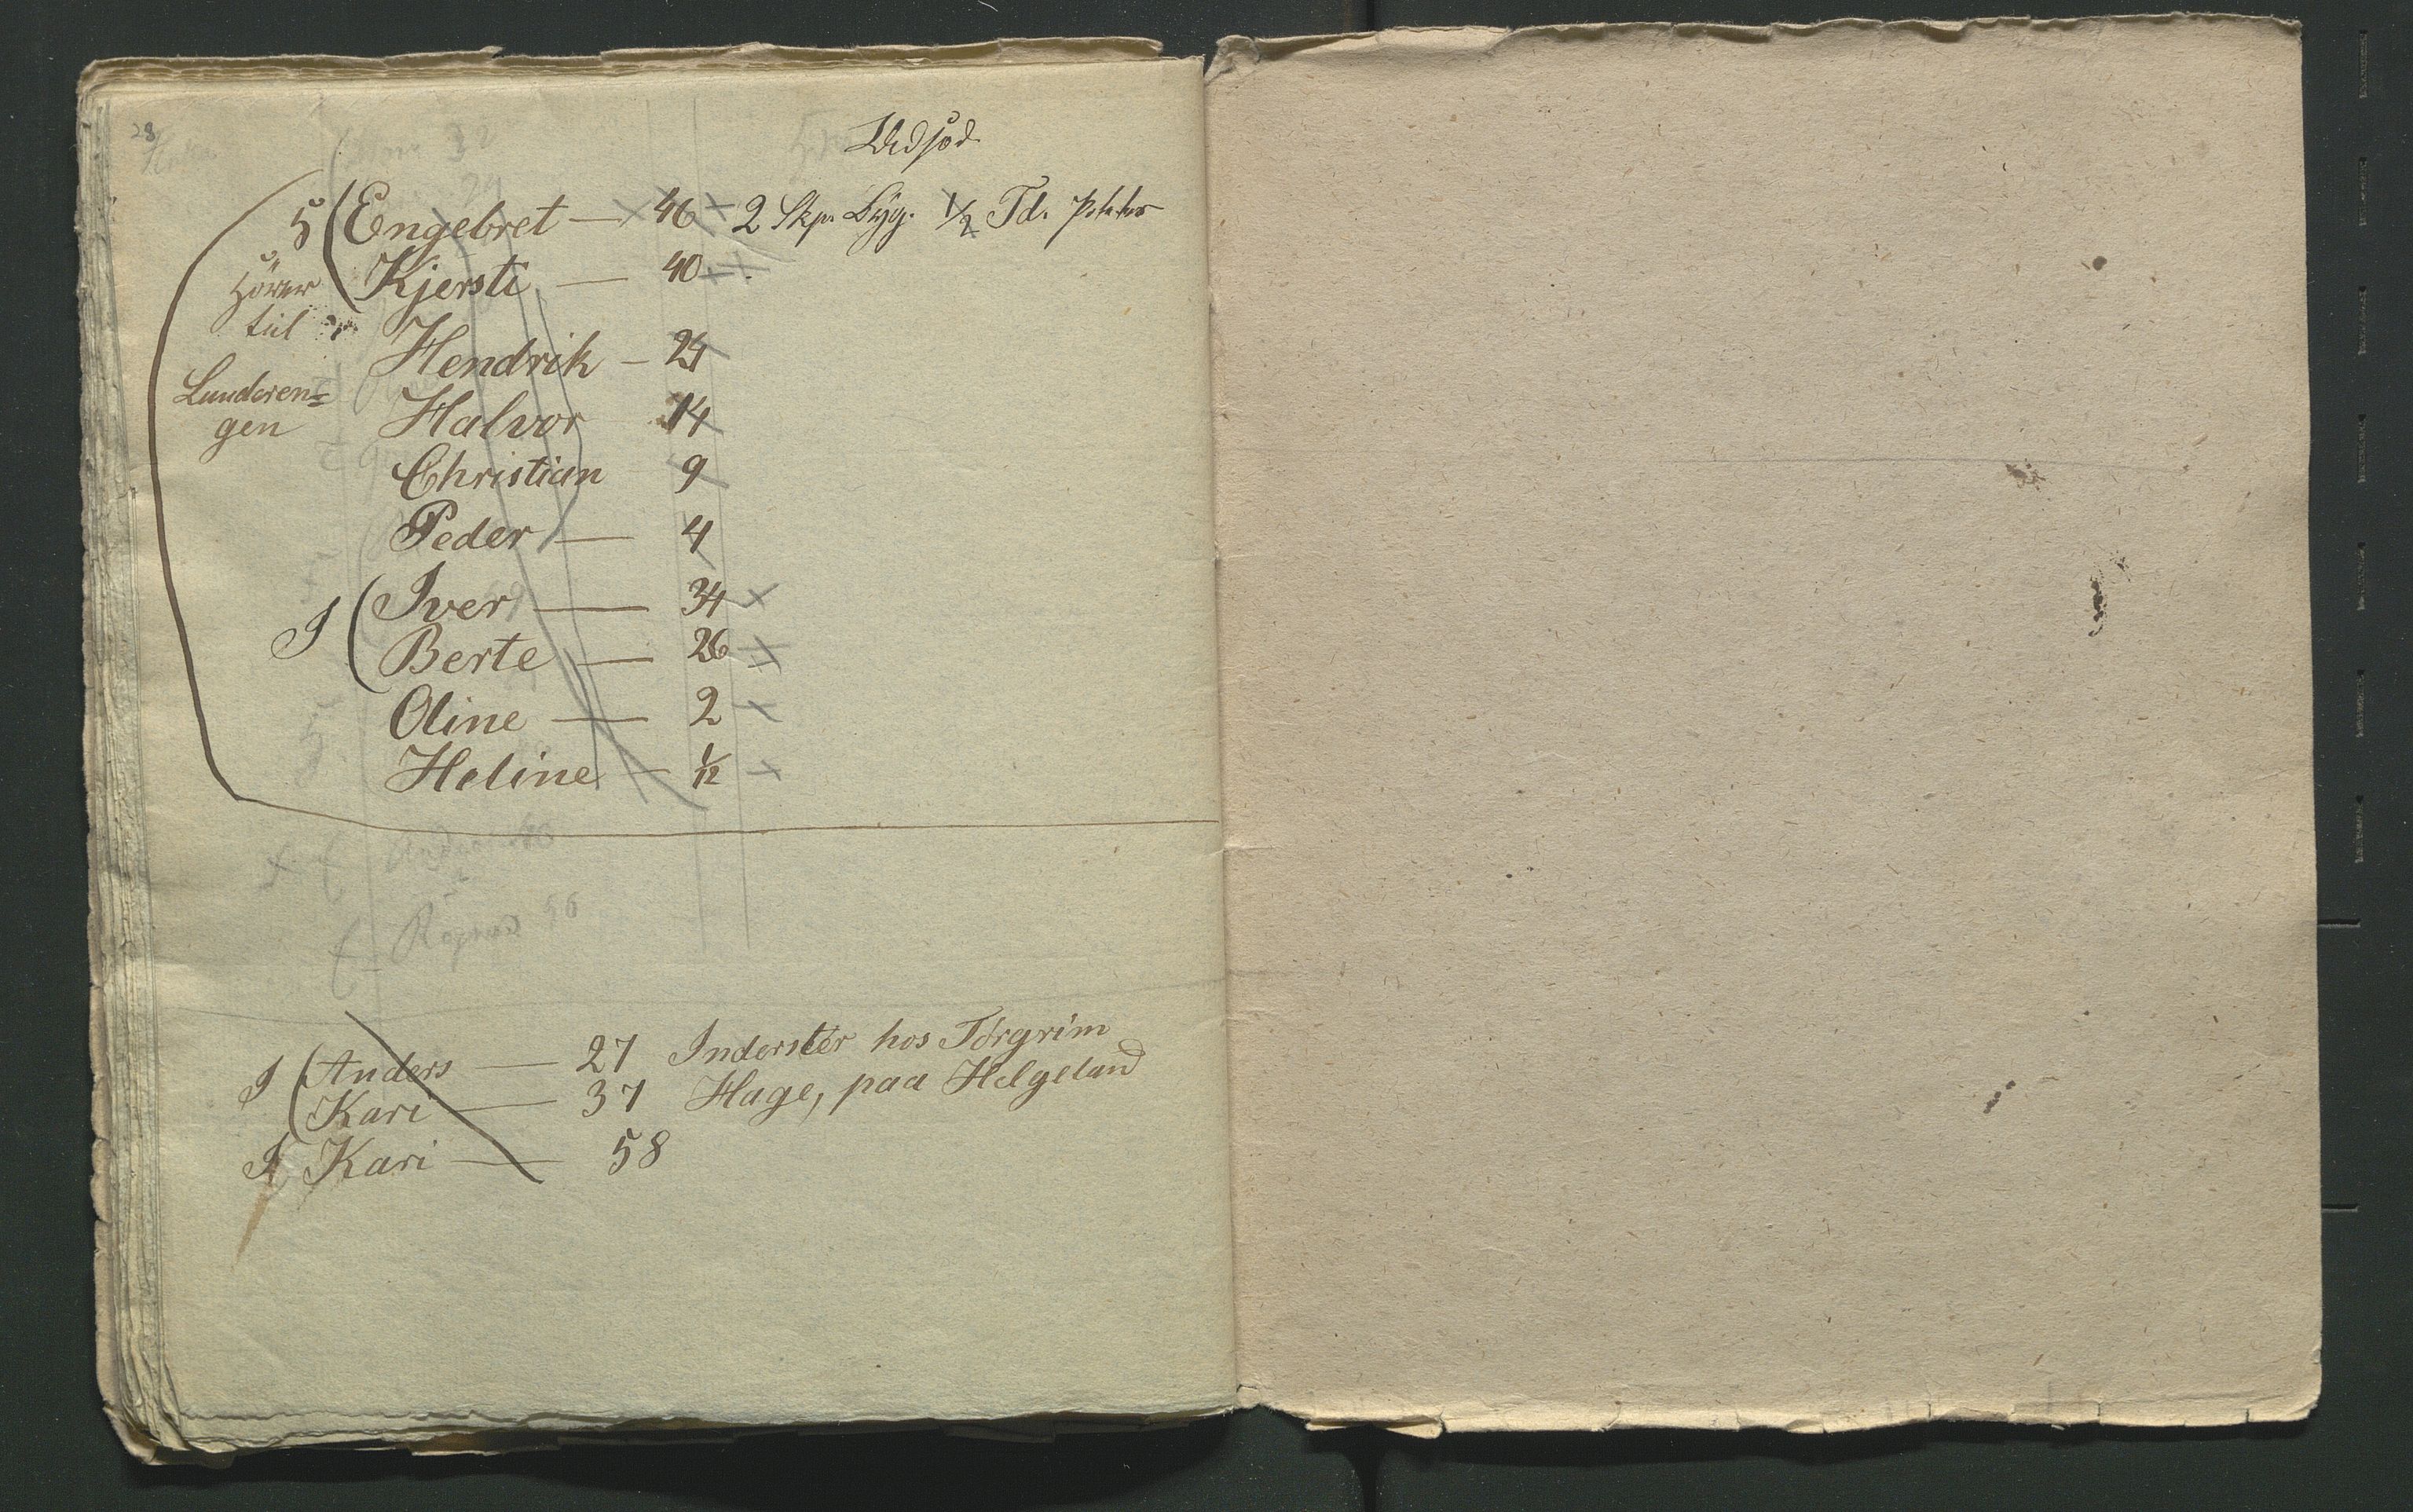 28
Udsæd
5 (Engebret — 46 2 Skp. Byg. 1/2 Td. Poteter
Hörer (Kjersti — 40
til
Hendrik — 24
Lunderen=
gen Halvor 14
Christian 9
Peder — 4
I (Iver — 34
Berte — 26
Oline — 2
Heline — 1/12
I (Anders — 27 Inderster hos Torgrim
Kari — 37 Hage, paa Helgeland
I Kari — 58